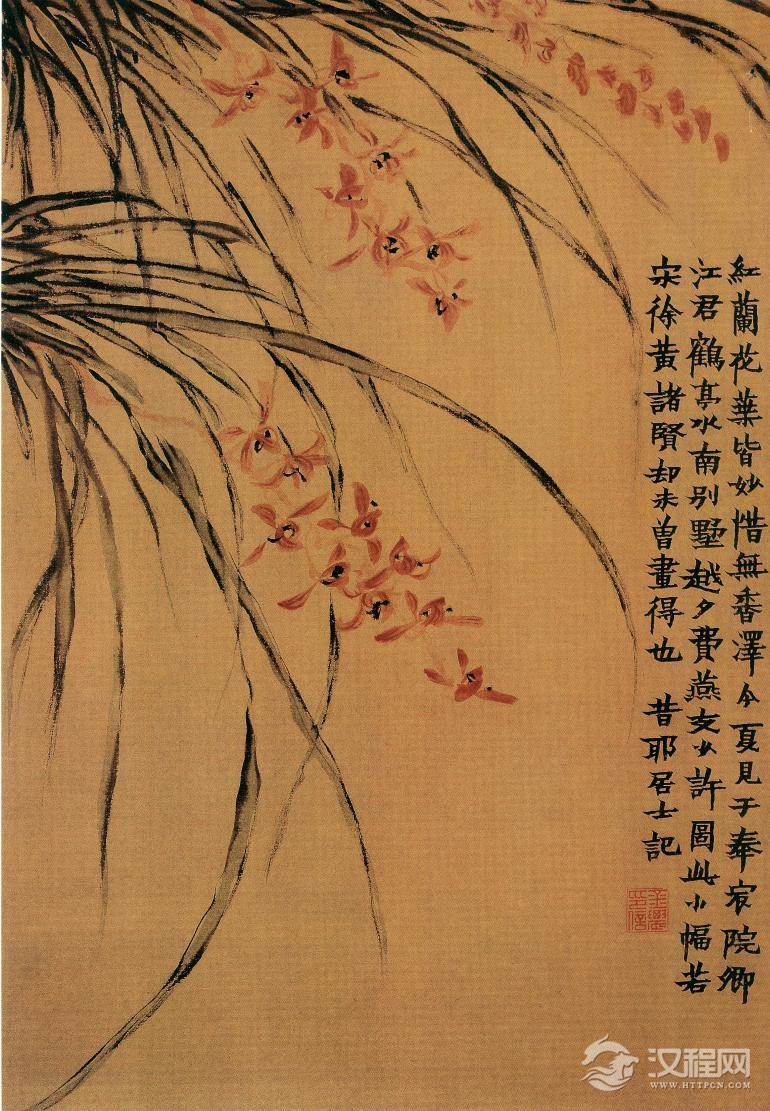 紅蘭花葉皆妙惜無香澤今夏見于奉宸院卿
江君鶴亭水南别墅越夕費燕支少許圖此小幅若
宋徐黄諸賢却未曾畫得也 昔耶居士記
金農印信
汉程网
WWW.HTTPCN.COM